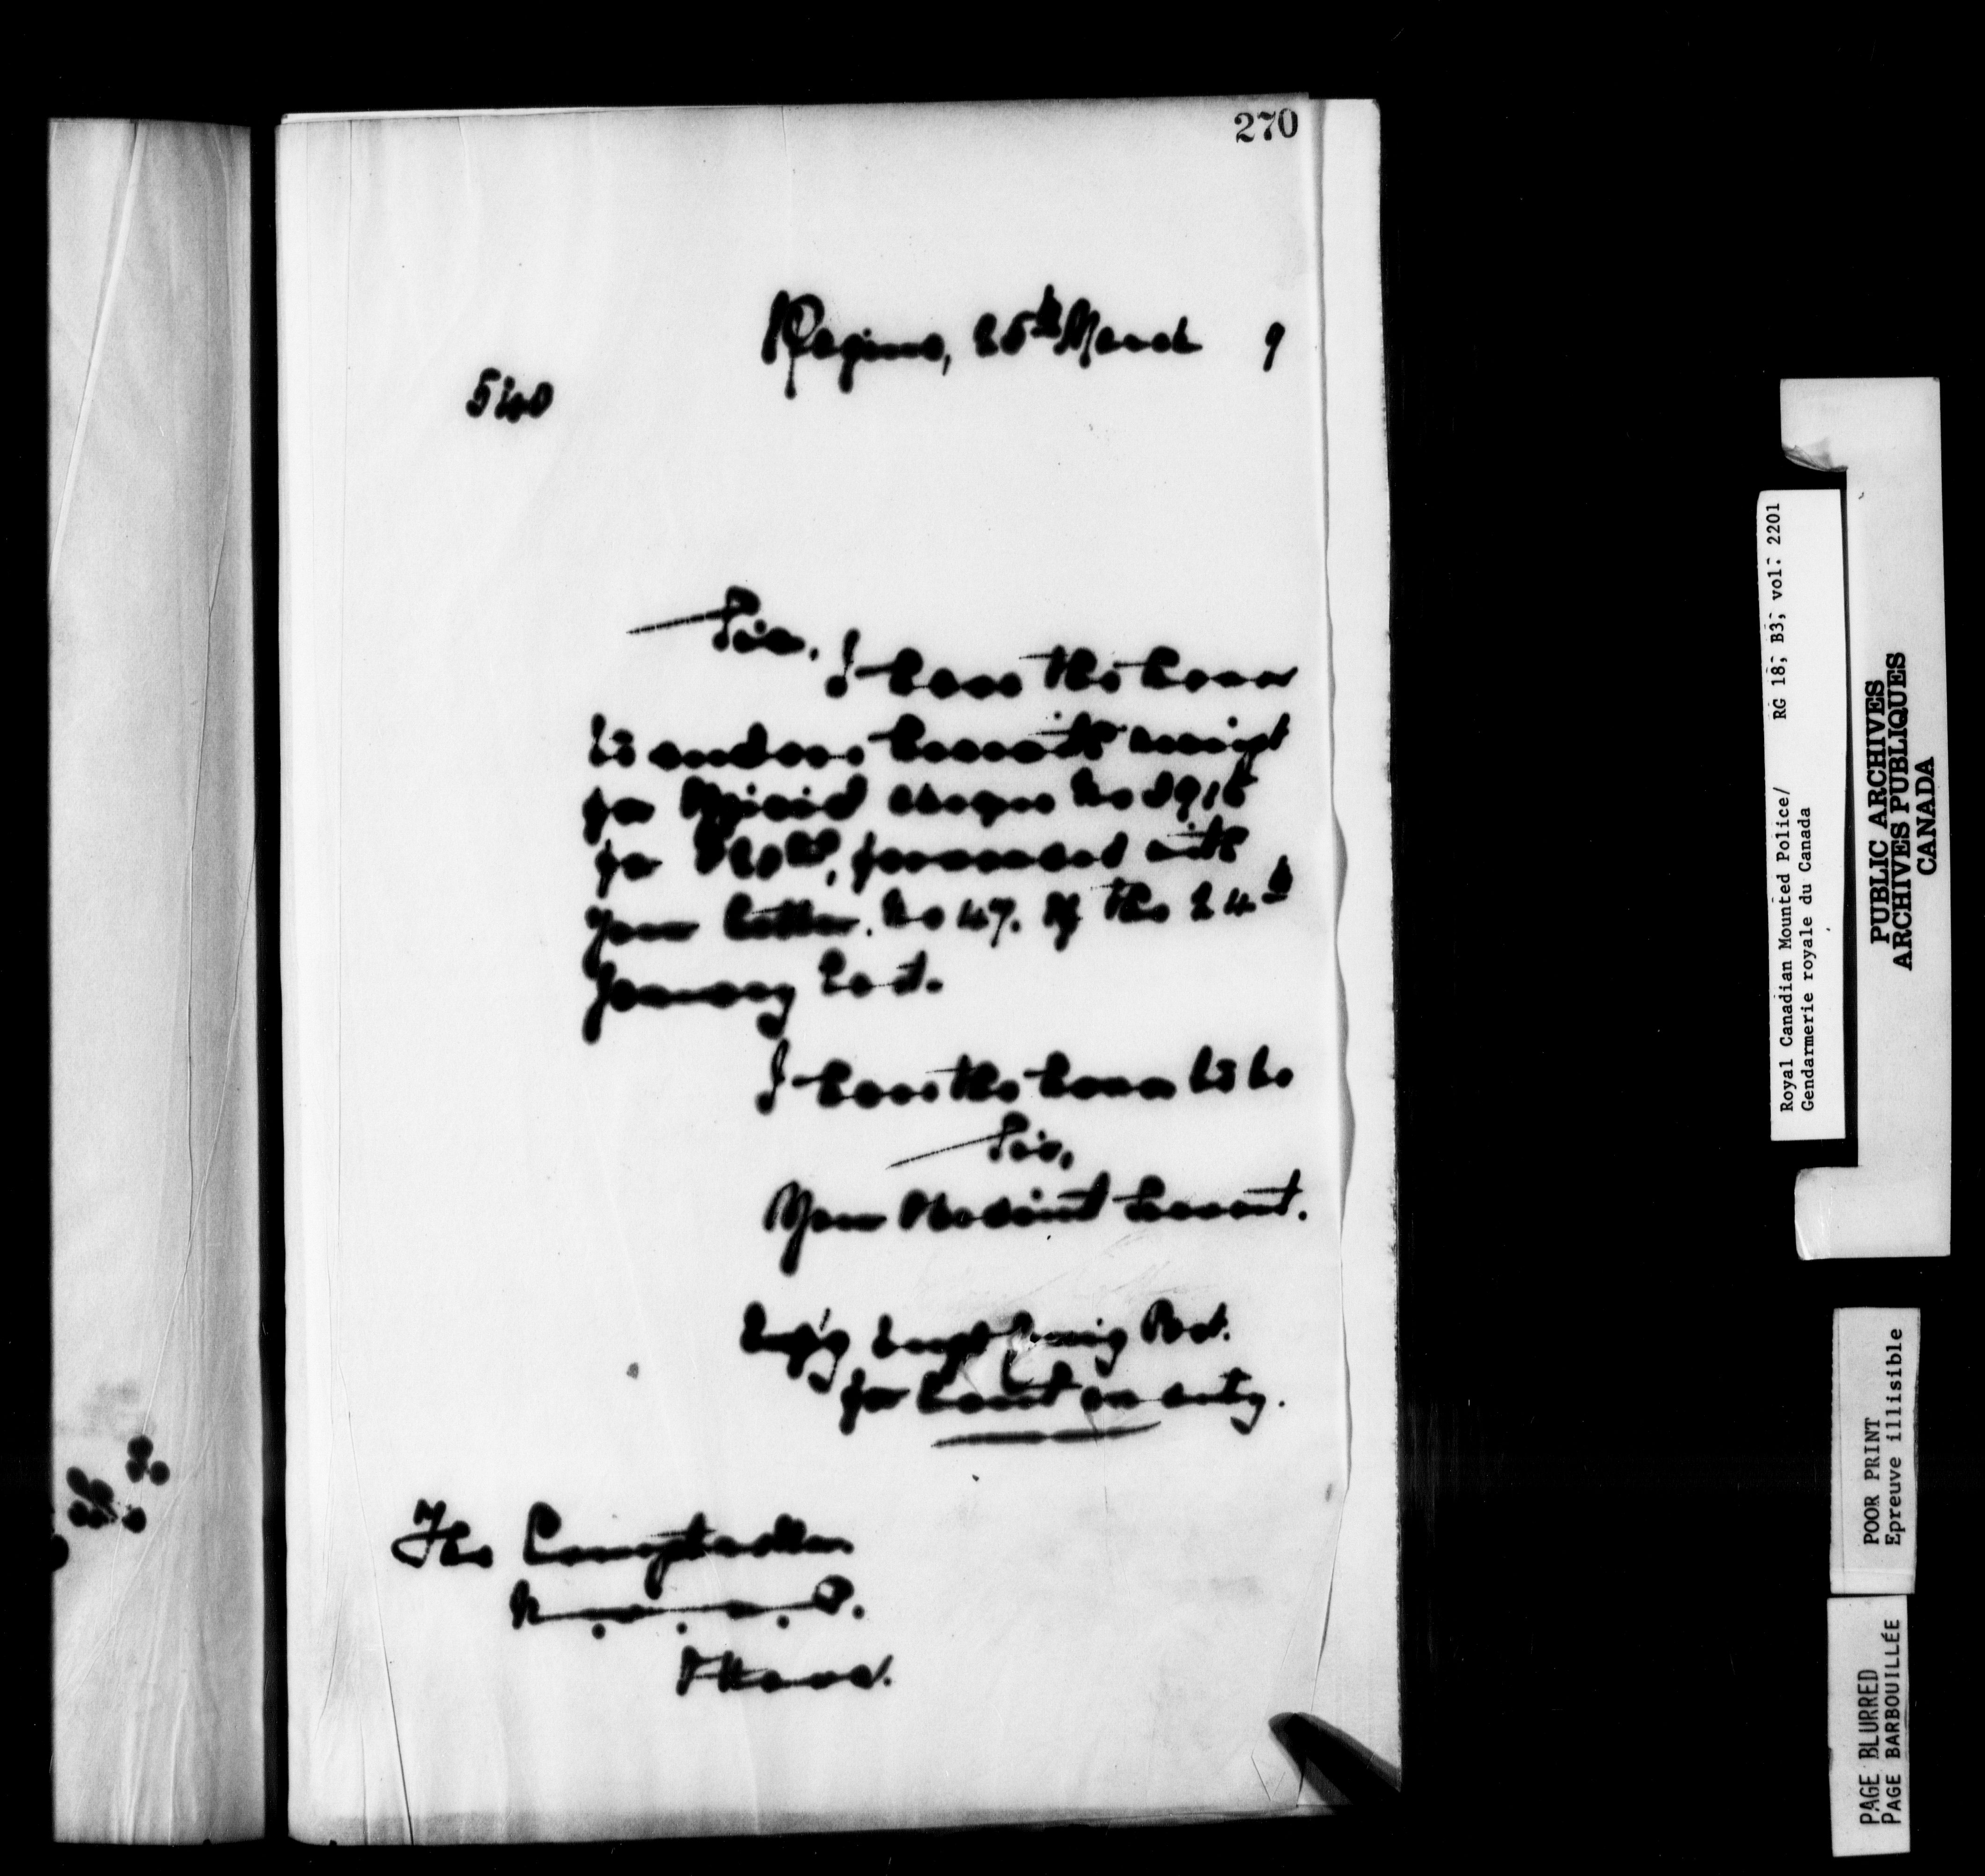 270
Regina, 25th March 9
540
Sir,
I have the honor
to endorse herewith receipt
for Official cheque No 8915
for forwarded with
your letter. No 47. of the 24th
January last.
I have the honor to be
Sir,
Your Obedient Servant.
Insp Comg Post.
for Comt on duty.
The Comptroller
N. W. M. P.
Ottawa.
Royal Canadian Mounted Police/ RG 18, B3, vol: 2201
Gendarmerie royale du Canada
PUBLIC ARCHIVES
ARCHIVES PUBLIQUES
CANADA
POOR PRINT
Epreuve illisible
PAGE BLURRED
PAGE BARBOUILLÉE